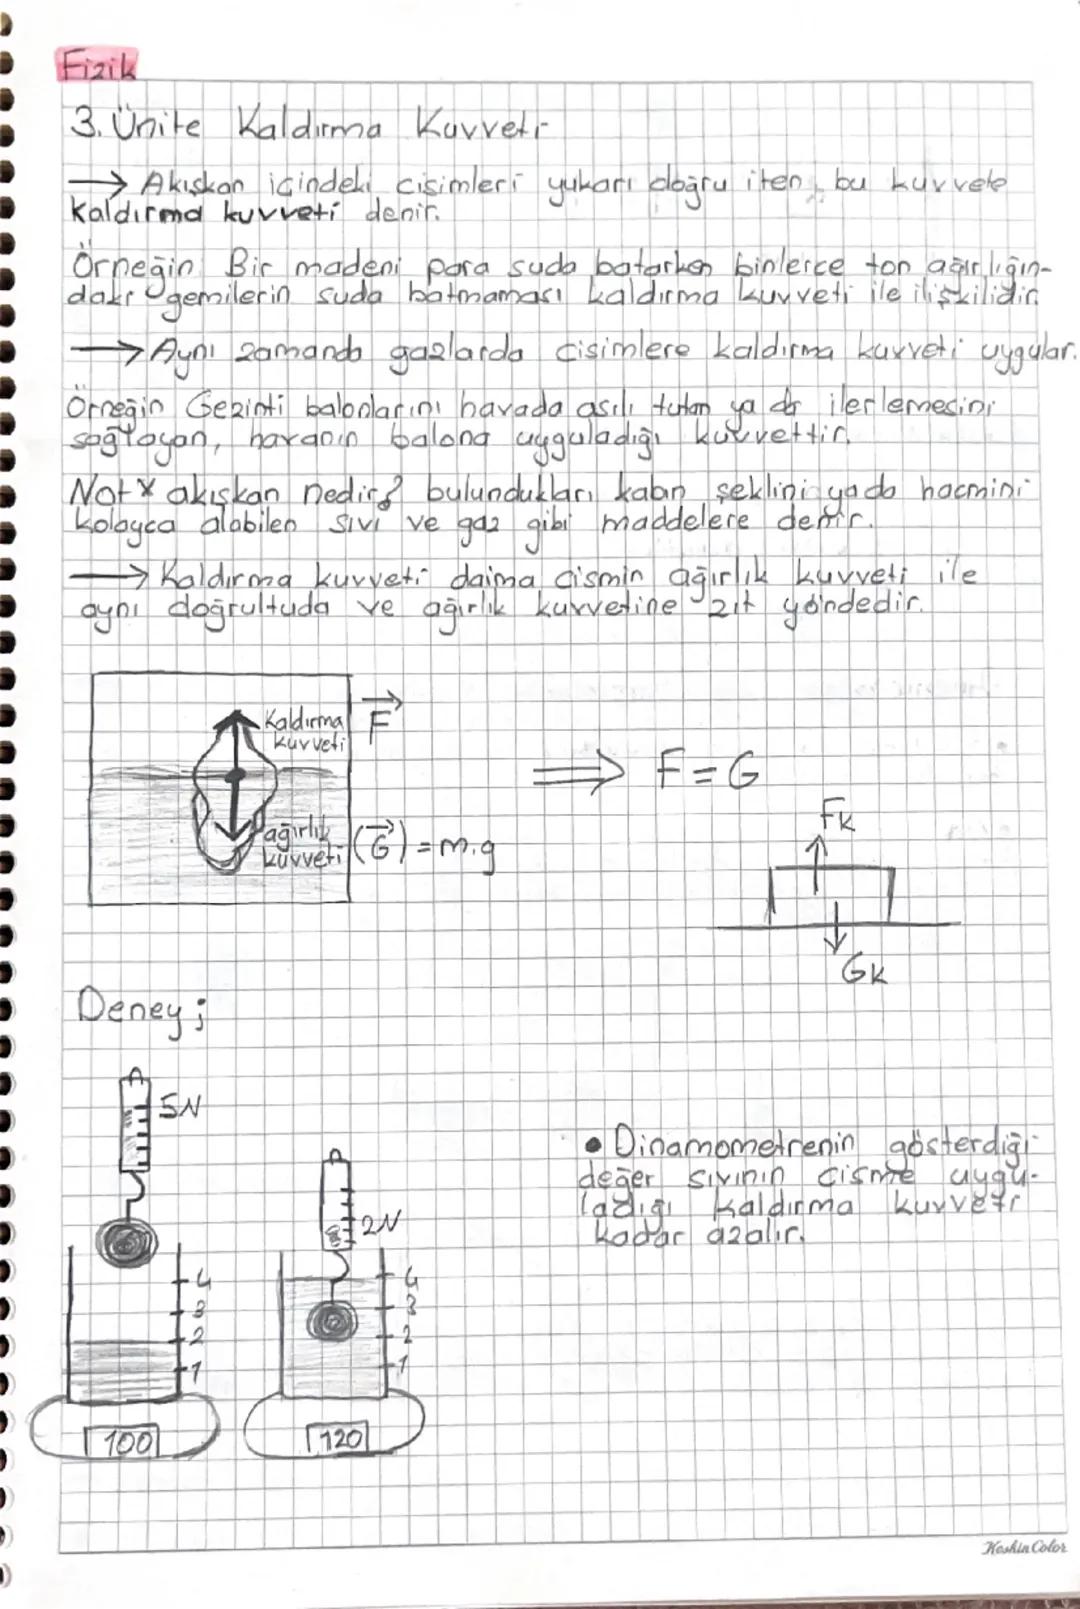 Fizik
3. Ünite Kaldırma Kuvveti
→ Akışkan içindeki cisimleri yukarı doğru iten, bu kuvvete
kaldırma kuvveti denir.
Örneğin; Bir madeni para suda batarken binlerce ton ağırlığın-
daki gemilerin suda batmaması kaldırma kuvveti ile ilişkilidir.
→ Aynı zamanda gazlarda cisimlere kaldırma kuvveti uygular.
Örneğin Gezinti balonlarını havada asılı tutan ya da ilerlemesini
sağlayan, havanın balona uyguladığı kuvvettir.
Not* akışkan nedir? bulundukları kabın şeklini yada hacmini
kolayca alabilen sıvı ve gaz gibi maddelere denir.
→ Kaldırma kuvveti daima cismin ağırlık kuvveti ile
aynı doğrultuda ve ağırlık kuvvetine zıt yöndedir.
Kaldırma
kuvveti
F
⇒ F = G
ağırlık
kuvveti (G) = m.g
Fk
Gk
Deney;
5N
2N
• Dinamometrenin gösterdiği
değer sıvının cisme uygu-
ladığı kaldırma kuvveti
kadar azalır.
4
3
2
1
4
3
2
1
100
120
Keskin Color